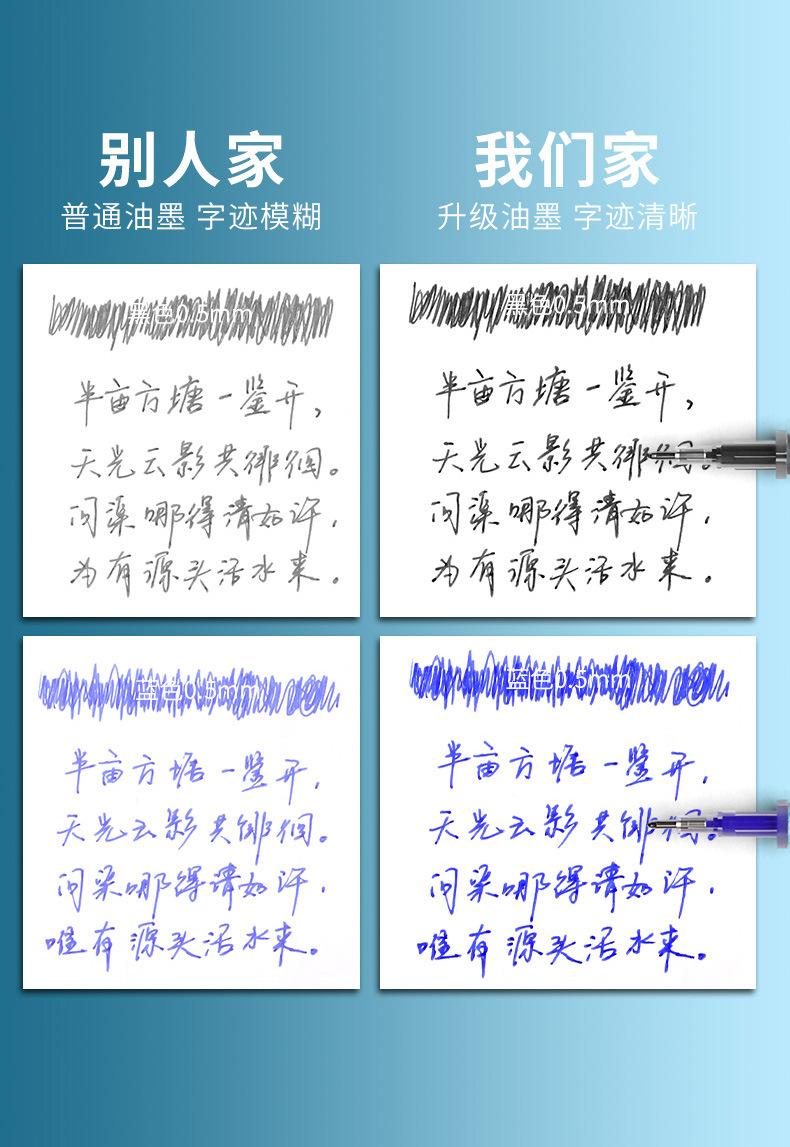 别人家
普通油墨 字迹模糊
我们家
升级油墨 字迹清晰
黑色0.5mm
半亩方塘一鉴开，
天光云影共徘徊。
问渠哪得清如许，
为有源头活水来。
黑色0.5mm
半亩方塘一鉴开，
天光云影共徘徊。
问渠哪得清如许，
为有源头活水来。
蓝色0.5mm
半亩方塘一鉴开，
天光云影共徘徊。
问渠哪得清如许，
唯有源头活水来。
蓝色0.5mm
半亩方塘一鉴开，
天光云影共徘徊。
问渠哪得清如许，
唯有源头活水来。